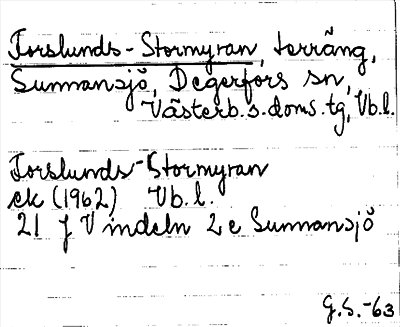 Forslunds-Stormyran, terräng,
Sunnansjö, Degerfors sn,
Västerb.s.doms.tg, Vb.l.
Forslunds-Stormyran
ek (1962) Vb.l.
21 J Vindeln 2 e Sunnansjö
G.S.-63